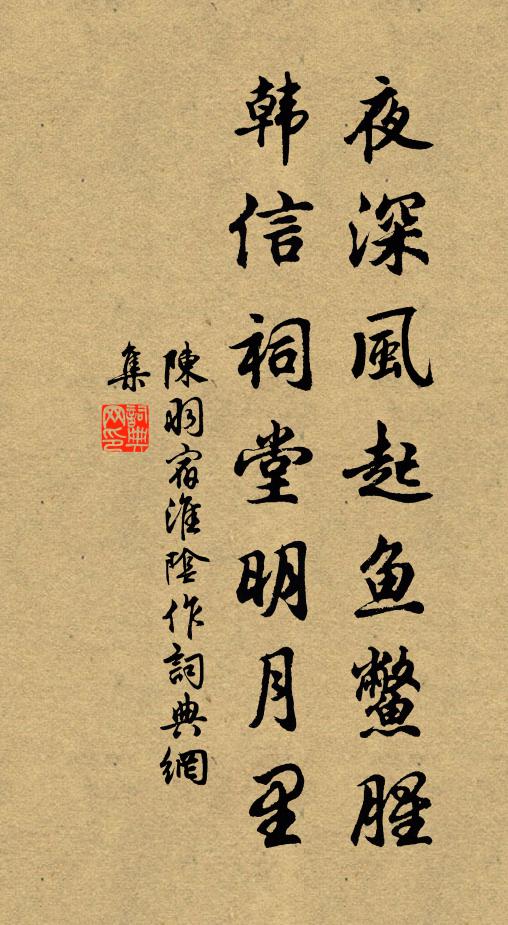 夜深風起鱼鱉腥
韩信祠堂明月里
陳羽宿淮陰作詞典網
集
詞典網印